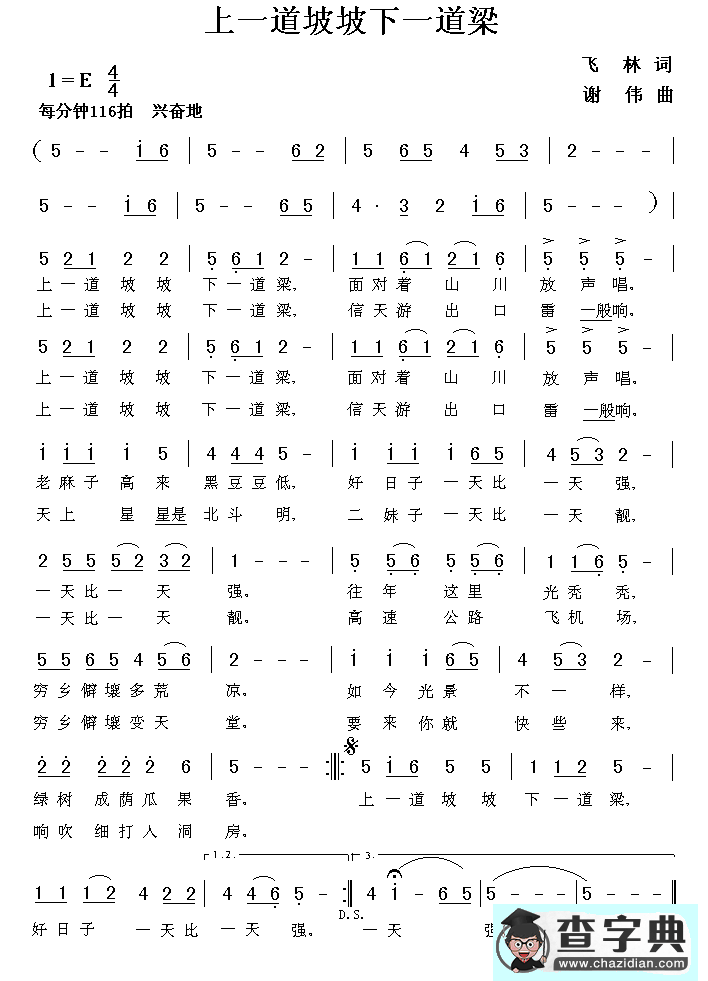 上一道坡坡下一道梁
1=E 4/4
飞 林 词
谢 伟 曲
每分钟116拍 兴奋地
( 5 - - i 6 | 5 - - 6 2 | 5 6 5 4 5 3 | 2 - - - |
5 - - i 6 | 5 - - 6 5 | 4 · 3 2 i 6 | 5 - - - )
5 2 1 2 2 | 5 6 1 2 - | 1 1 6 1 2 1 6 | 5 5 5 - |
上 一 道 坡 坡 下 一 道 梁, 面 对 着 山 川 放 声 唱。
上 一 道 坡 坡 下 一 道 梁, 信 天 游 出 口 雷 一般 响。
5 2 1 2 2 | 5 6 1 2 - | 1 1 6 1 2 1 6 | 5 5 5 - |
上 一 道 坡 坡 下 一 道 梁, 面 对 着 山 川 放 声 唱。
上 一 道 坡 坡 下 一 道 梁, 信 天 游 出 口 雷 一般 响。
i i i i 5 | 4 4 4 5 - | i i i i 6 5 | 4 5 3 2 - |
老 麻 子 高 来 黑 豆 豆 低, 好 日 子 一 天 比 一 天 强,
天 上 星 星是 北 斗 明, 二 妹 子 一 天 比 一 天 靓,
2 5 5 5 2 3 2 | 1 - - - | 5 5 6 5 5 6 | 1 1 6 5 - |
一 天 比 一 天 强。 往 年 这 里 光 秃 秃,
一 天 比 一 天 靓。 高 速 公 路 飞 机 场,
5 5 6 5 4 5 6 | 2 - - - | i i i i 6 5 | 4 5 3 2 - |
穷 乡 僻 壤 多 荒 凉。 如 今 光 景 不 一 样,
穷 乡 僻 壤 变 天 堂。 要 来 你 就 快 些 来,
2 2 2 2 2 6 | 5 - - - :||: 5 i 6 5 5 | 1 1 2 5 - |
绿 树 成 荫 瓜 果 香。 上 一 道 坡 坡 下 一 道 梁,
响 吹 细 打 入 洞 房。
1.2. 3.
1 1 1 2 4 2 2 | 4 4 6 5 - :|| 4 i - 6 5 | 5 - - - | 5 - - - ||
D.S.
好 日 子 一 天 比 一 天 强。 一 天 强
查字典
www.chazidian.com